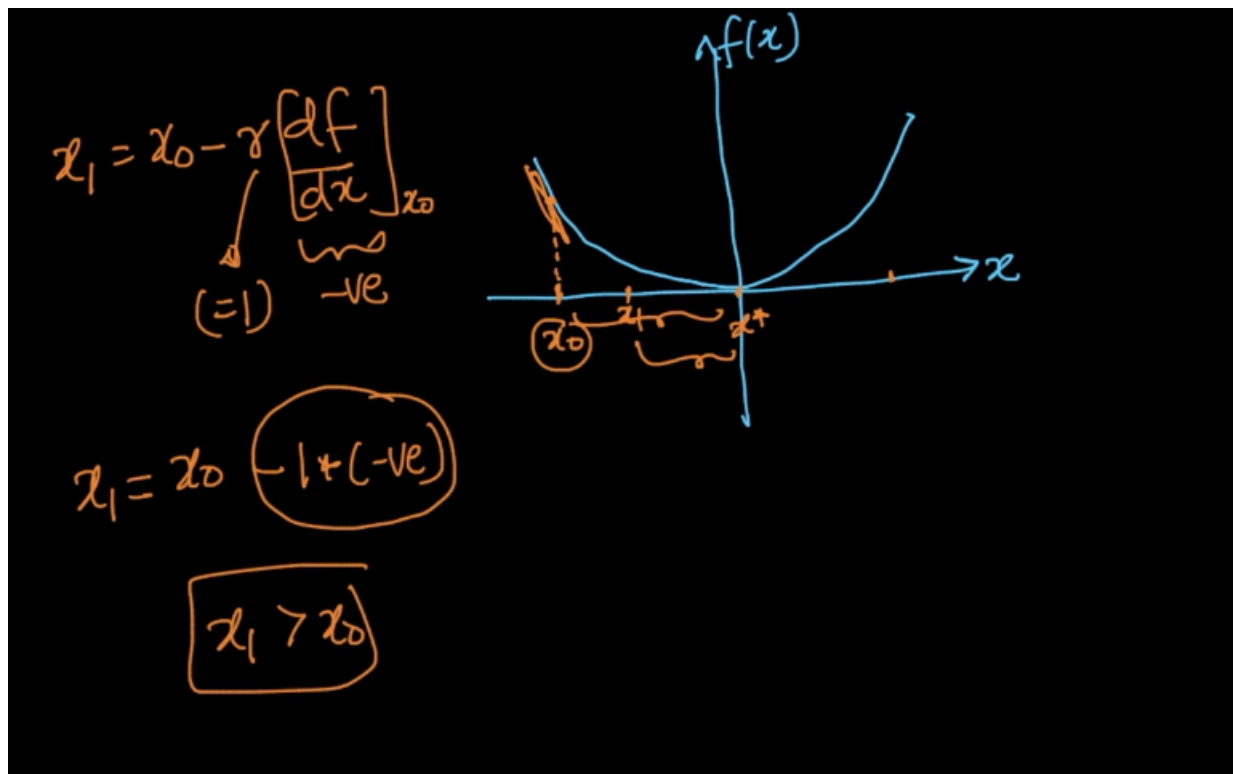 x₁ = x₀ - r [df/dx]x₀
(=1) -ve
x₁ = x₀ - 1*(-ve)
x₁ > x₀
f(x)
x
x₀ x₁ x*